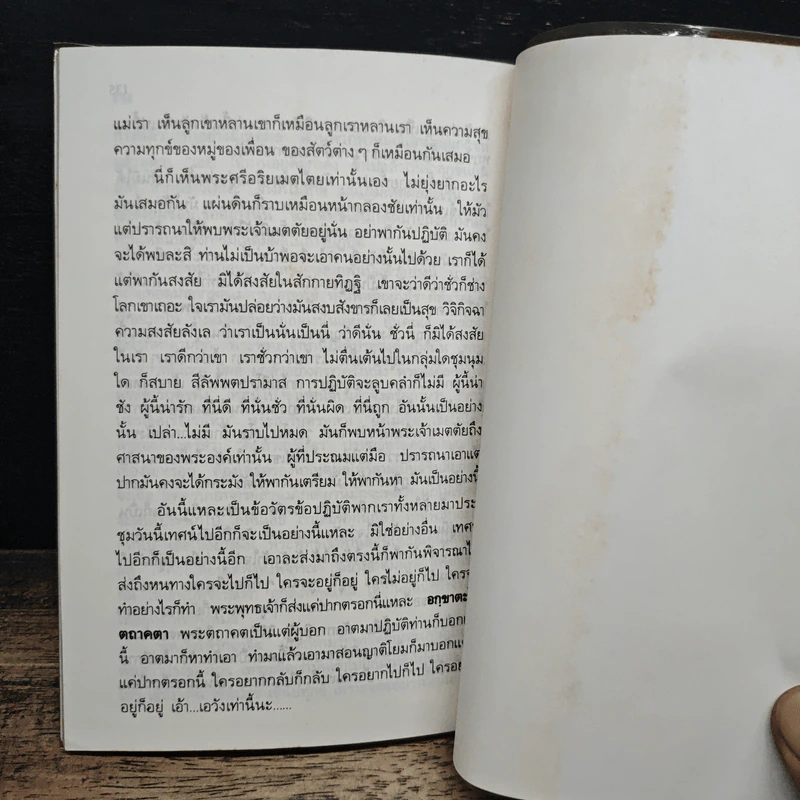 แม่เรา เห็นลูกเขาหลานเขาก็เหมือนลูกเราหลานเรา เห็นความสุข
ความทุกข์ของหมู่ของเพื่อน ของสัตว์ต่าง ๆ ก็เหมือนกันเสมอ
นี่ก็เห็นพระศรีอริยเมตไตยเท่านั้นเอง ไม่ยุ่งยากอะไร
มันเสมอกัน แผ่นดินก็ราบเหมือนหน้ากลองชัยเท่านั้น ให้มัว
แต่ปรารถนาให้พบพระเจ้าเมตตัยอยู่นั่น อย่าพากันปฏิบัติ มันคง
จะได้พบละสิ ท่านไม่เป็นบ้าพอจะเอาคนอย่างนั้นไปด้วย เราก็ได้
แต่พากันสงสัย มิได้สงสัยในสักกายทิฏฐิ เขาจะว่าดีว่าชั่วก็ช่าง
โลกเขาเถอะ ใจเรามันปล่อยว่างมันสงบสังขารก็เลยเป็นสุข วิจิกิจฉา
ความสงสัยลังเล ว่าเราเป็นนั่นเป็นนี่ ว่าดีนั่น ชั่วนี่ ก็มิได้สงสัย
ในเรา เราดีกว่าเขา เราชั่วกว่าเขา ไม่ตื่นเต้นไปในกลุ่มใดชุมนุม
ใด ก็สบาย สีลัพพตปรามาส การปฏิบัติจะลูบคลำก็ไม่มี ผู้นี้น่า
ชัง ผู้นี้น่ารัก ที่นี่ดี ที่นั่นชั่ว ที่นั่นผิด ที่นี่ถูก อันนั้นเป็นอย่าง
นั้น เปล่า...ไม่มี มันราบไปหมด มันก็พบหน้าพระเจ้าเมตตัยถึง
ศาสนาของพระองค์เท่านั้น ผู้ที่ประณมแต่มือ ปรารถนาเอาแต่
ปากมันคงจะได้กระมัง ให้พากันเตรียม ให้พากันหา มันเป็นอย่างนี้
อันนี้แหละเป็นข้อวัตรข้อปฏิบัติพากเราทั้งหลายมาประ
ชุมวันนี้เทศน์ไปอีกก็จะเป็นอย่างนี้แหละ มิใช่อย่างอื่น เทศ
ไปอีกก็เป็นอย่างนี้อีก เอาละส่งมาถึงตรงนี้ก็พากันพิจารณา
ส่งถึงหนทางใครจะไปก็ไป ใครจะอยู่ก็อยู่ ใครไม่อยู่ก็ไป ใคร
ทำอย่างไรก็ทำ พระพุทธเจ้าก็ส่งแค่ปากตรอกนี่แหละ อกฺขาตะ
ตถาคตา พระตถาคตเป็นแต่ผู้บอก อาตมาปฏิบัติท่านก็บอก
นี้ อาตมาก็หาทำเอา ทำมาแล้วเอามาสอนญาติโยมก็มาบอก
แค่ปากตรอกนี้ ใครอยากกลับก็กลับ ใครอยากไปก็ไป ใคร
อยู่ก็อยู่ เอ้า...เอวังเท่านี้นะ......